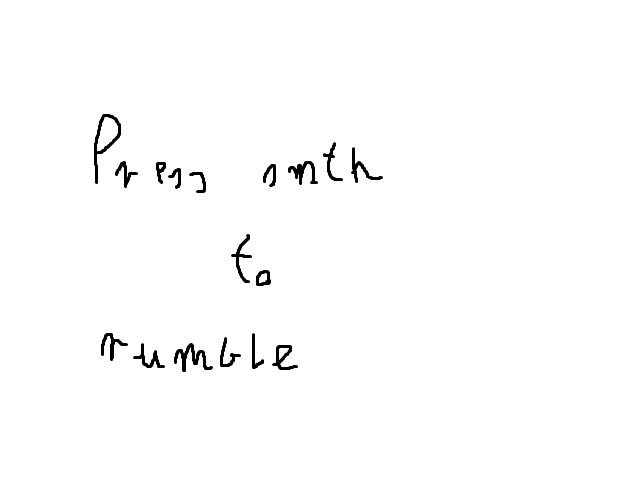 Press smth
to
rumble